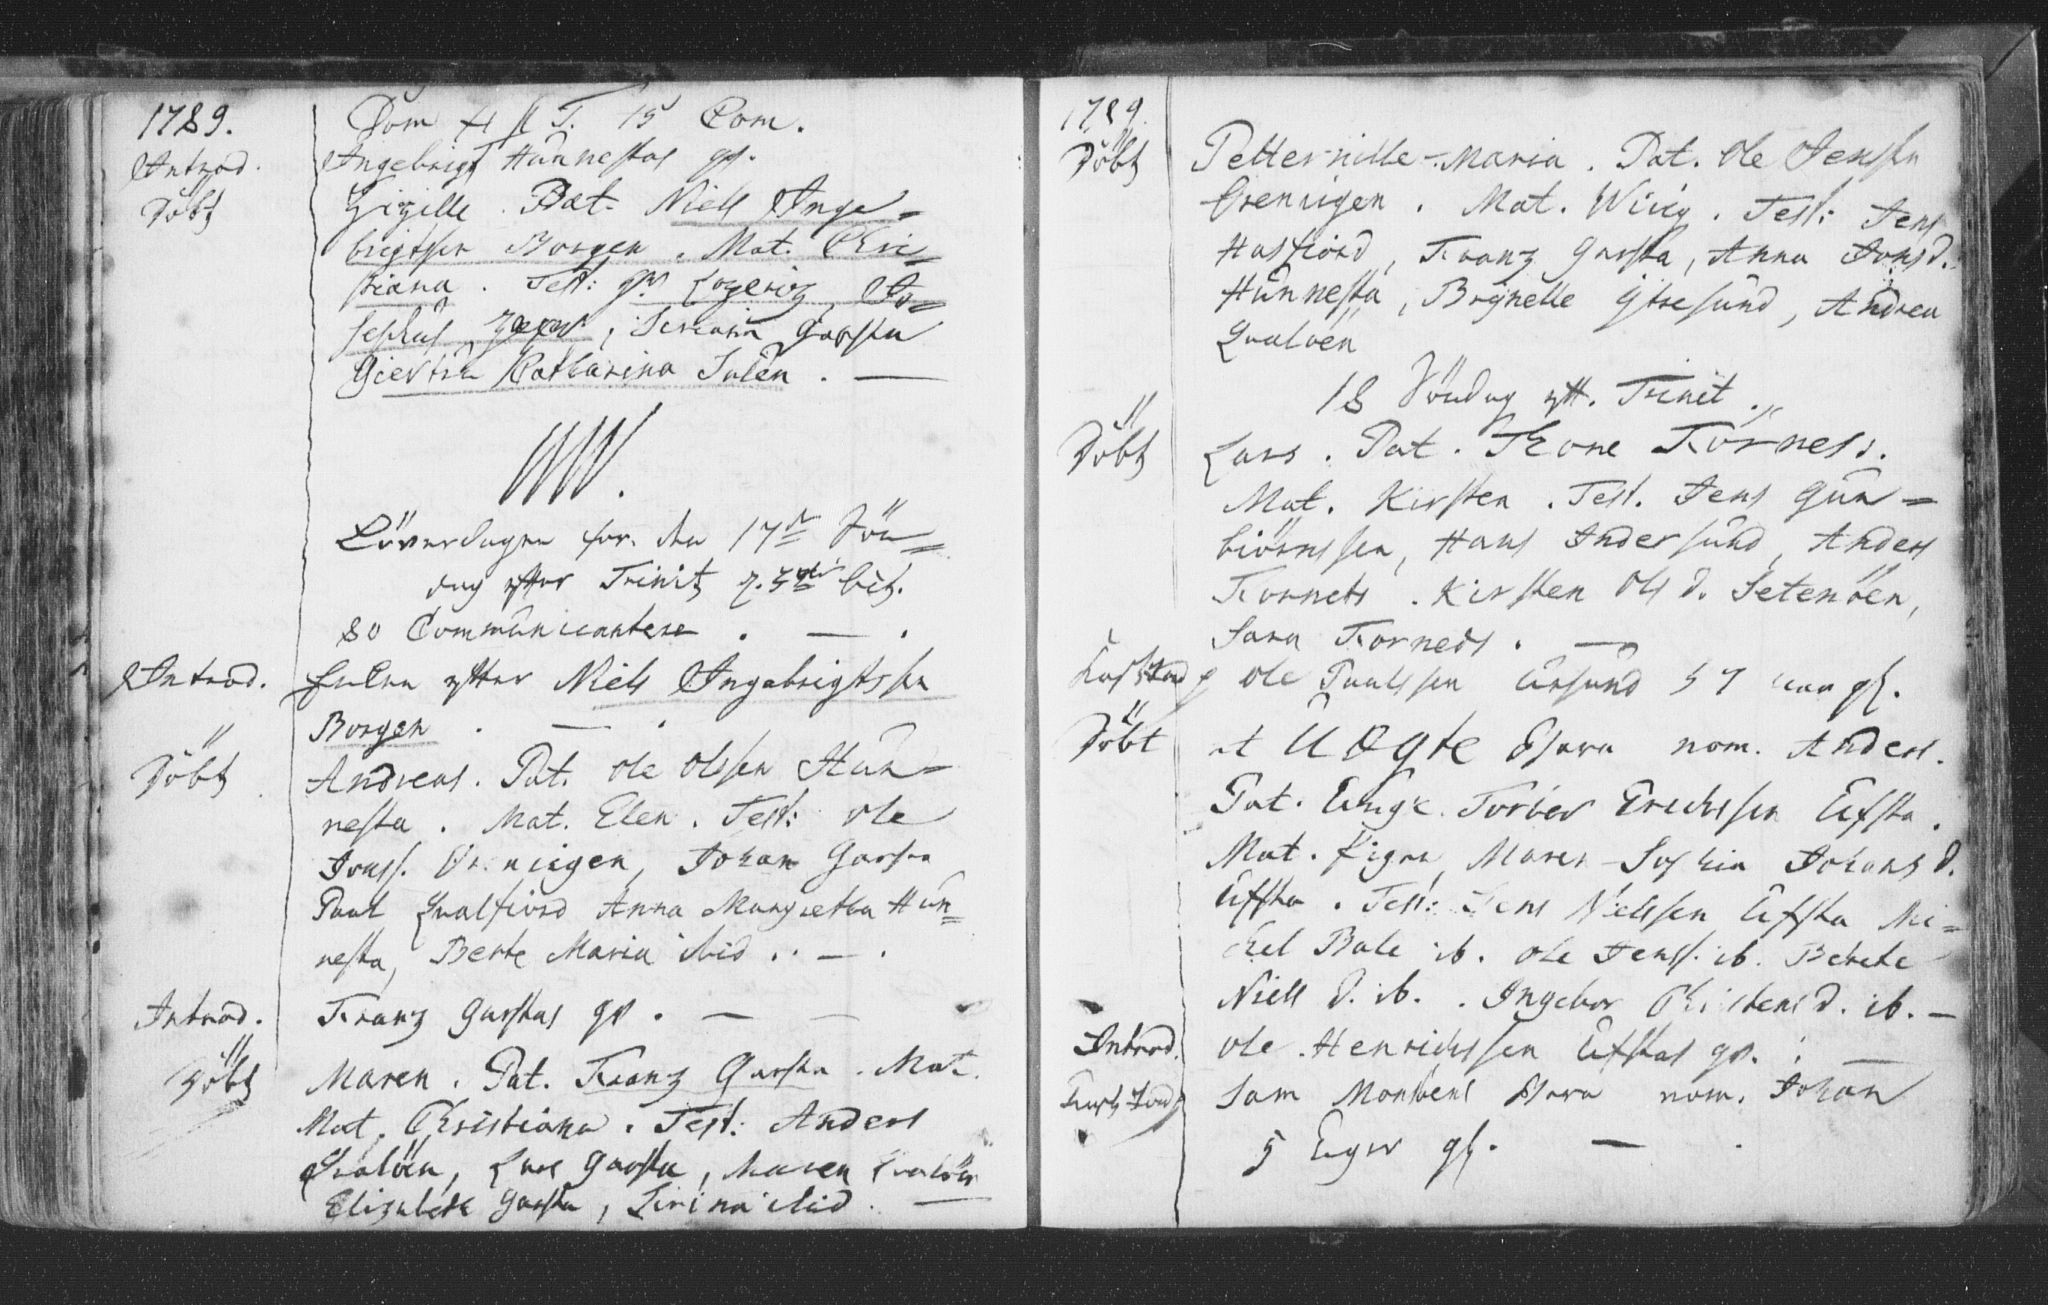 1789.
Dom 4 p T. 15 Com.
Introd. Ingebrigt Hünnestas
Döbt Zizille. Pat. Niels Inge=
brigtsen Borgen. Mat. Chri=
stiana. Test: Jo=
sephus, Garsten
Catharina Julen. —
Löverdagen for. den 17de Sön=
dag efter Trinit
80 Communicantere. — .
Introd. Enken efter Niels Ingebrigtssen
Borgen. — .
Döbt Andreas. Pat. Ole Olssen Hün=
nesta. Mat. Elen. Test: Ole
Jonss. Grenningen, Johan Garsten
Paul Qualfiord Anna Margretha Hün=
nesta, Berte Maria ibid. . — .
Introd. Franz Garstas — —
Döbt Maren. Pat. Franz Garsta. Mat.
Mat. Christiana. Test: Anders
Qvalöen, Lars Garsta, Maren Qvalöen
Elizabeth Garsta, Sirina ibid. —
1789
Döbt Petternille-Maria. Pat. Ole Jenssen
Grenningen. Mat. Test: Jens
Hasfiord, Franz Garsta, Anna Jonsd.
Hünnesta, Brynelle Ytresund, Andrea
Qualöen
18 Söndag eft. Trinit.
Döbt Lars. Pat. Trone Kornes.
Mat. Kirsten. Test. Jens Gün=
biörnssen, Hans Indersund, Anders
Kornets. Kirsten Olsd. Setenöen,
Sara Korneds. —
Ole Paulssen 57 aar gl.
Döbt et Uægte Barn nom. Anders.
Pat. Ungk. Torber Erichssen Efsta.
Mat. Pigen Maren-Sophia Johansd.
Efsta. Test: Jens Nielssen Efsta Mi=
chel Bale ib. Ole Jenss. ib. Berete
Niels d. ib. Ingebor Christensd. ib. —
Introd. Ole Henrichssen Efstas —
Sam Monsens Barn nom. Johan
5 Uger gl. — .